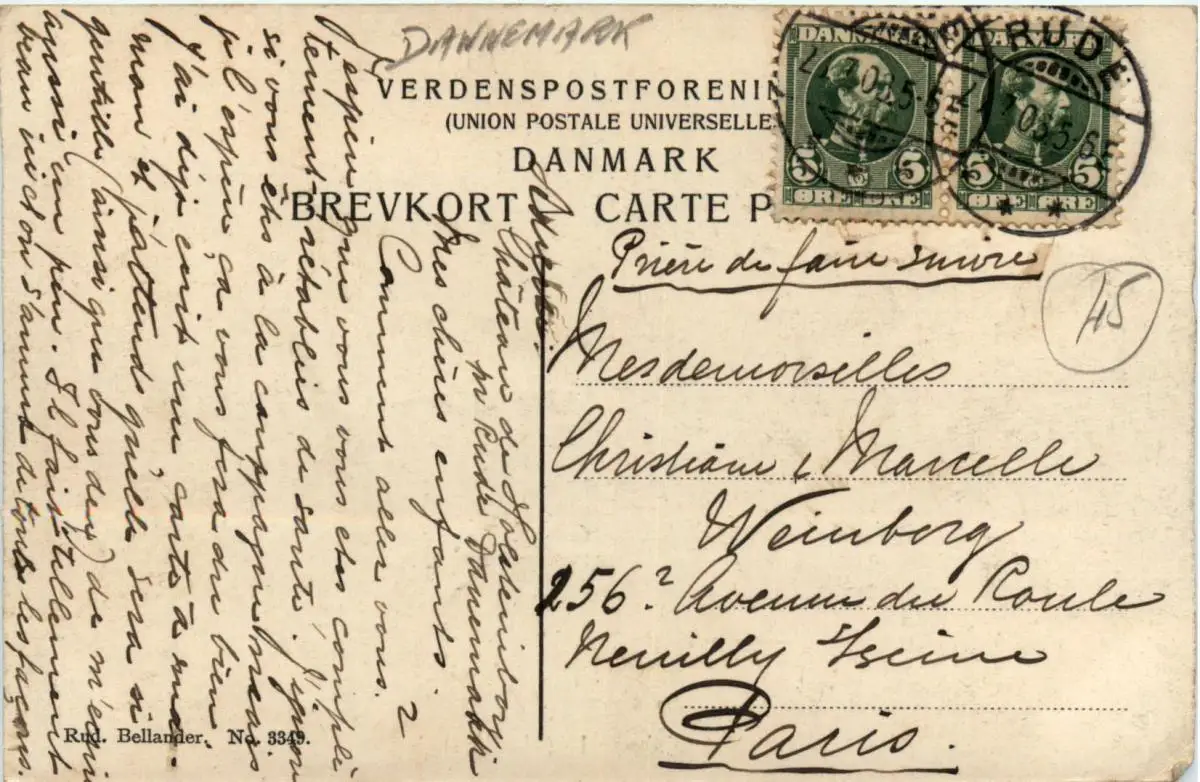 DANNEMARK
VERDENSPOSTFORENIN
(UNION POSTALE UNIVERSELLE)
DANMARK
BREVKORT CARTE P
DANMARK
5 5
ØRE ØRE
DANMARK
5 5
ØRE ØRE
RUDE
Prière de faire suivre
45
Mesdemoiselles
Christiane & Marcelle
Weinberg
256? Avenue du Roule
Neuilly s/Seine
Paris.
Château de Holsteinborg
pr Rude Danemark
Mes chères enfants.
Comment allez vous?
J'espère que vous vous êtes complè
tement rétablies de santé. J'ignore
si vous êtes à la campagne mais
j'l'espère ça vous fera du bien.
J'ai déjà écrit une carte à ma
man et j'attends qu'elle sera si
gentille (ainsi que vous deux) de m'écrire
aussi un peu. Il fait tellement
beau ici et on s'amuse de toutes les façons.
Rud. Bellander. No. 3349.